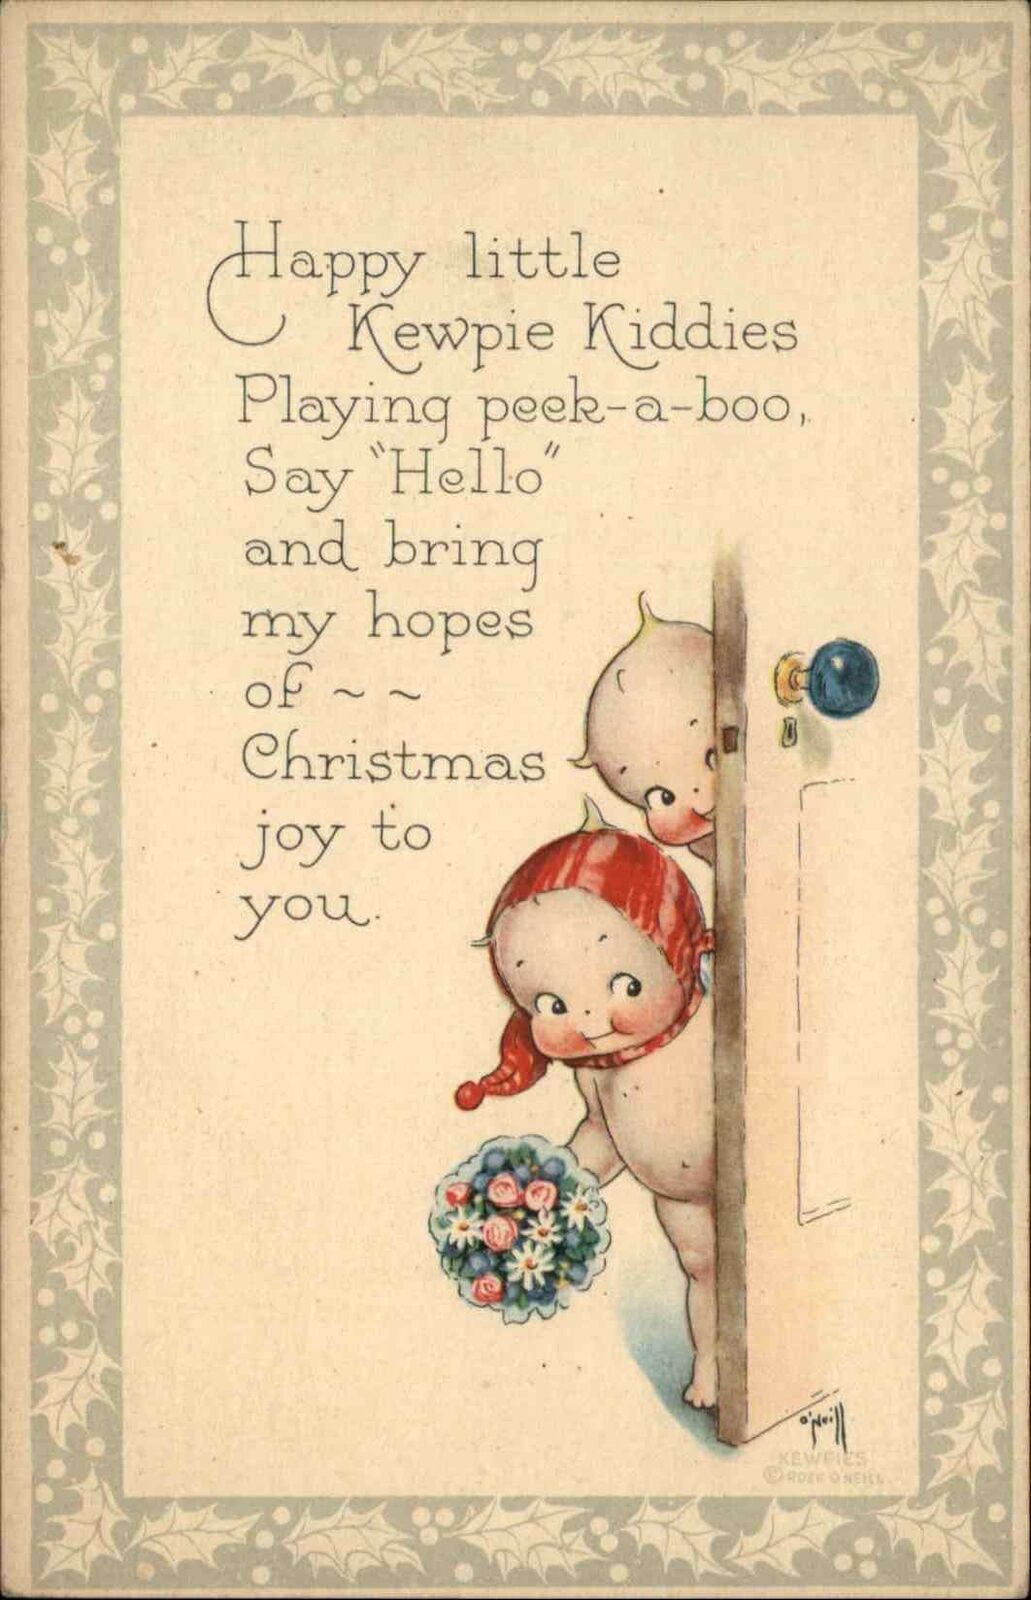 Happy little
Kewpie Kiddies
Playing peek-a-boo,
Say "Hello"
and bring
my hopes
of ~ ~
Christmas
joy to
you.
O'Neill
KEWPIES
© ROSE O'NEILL